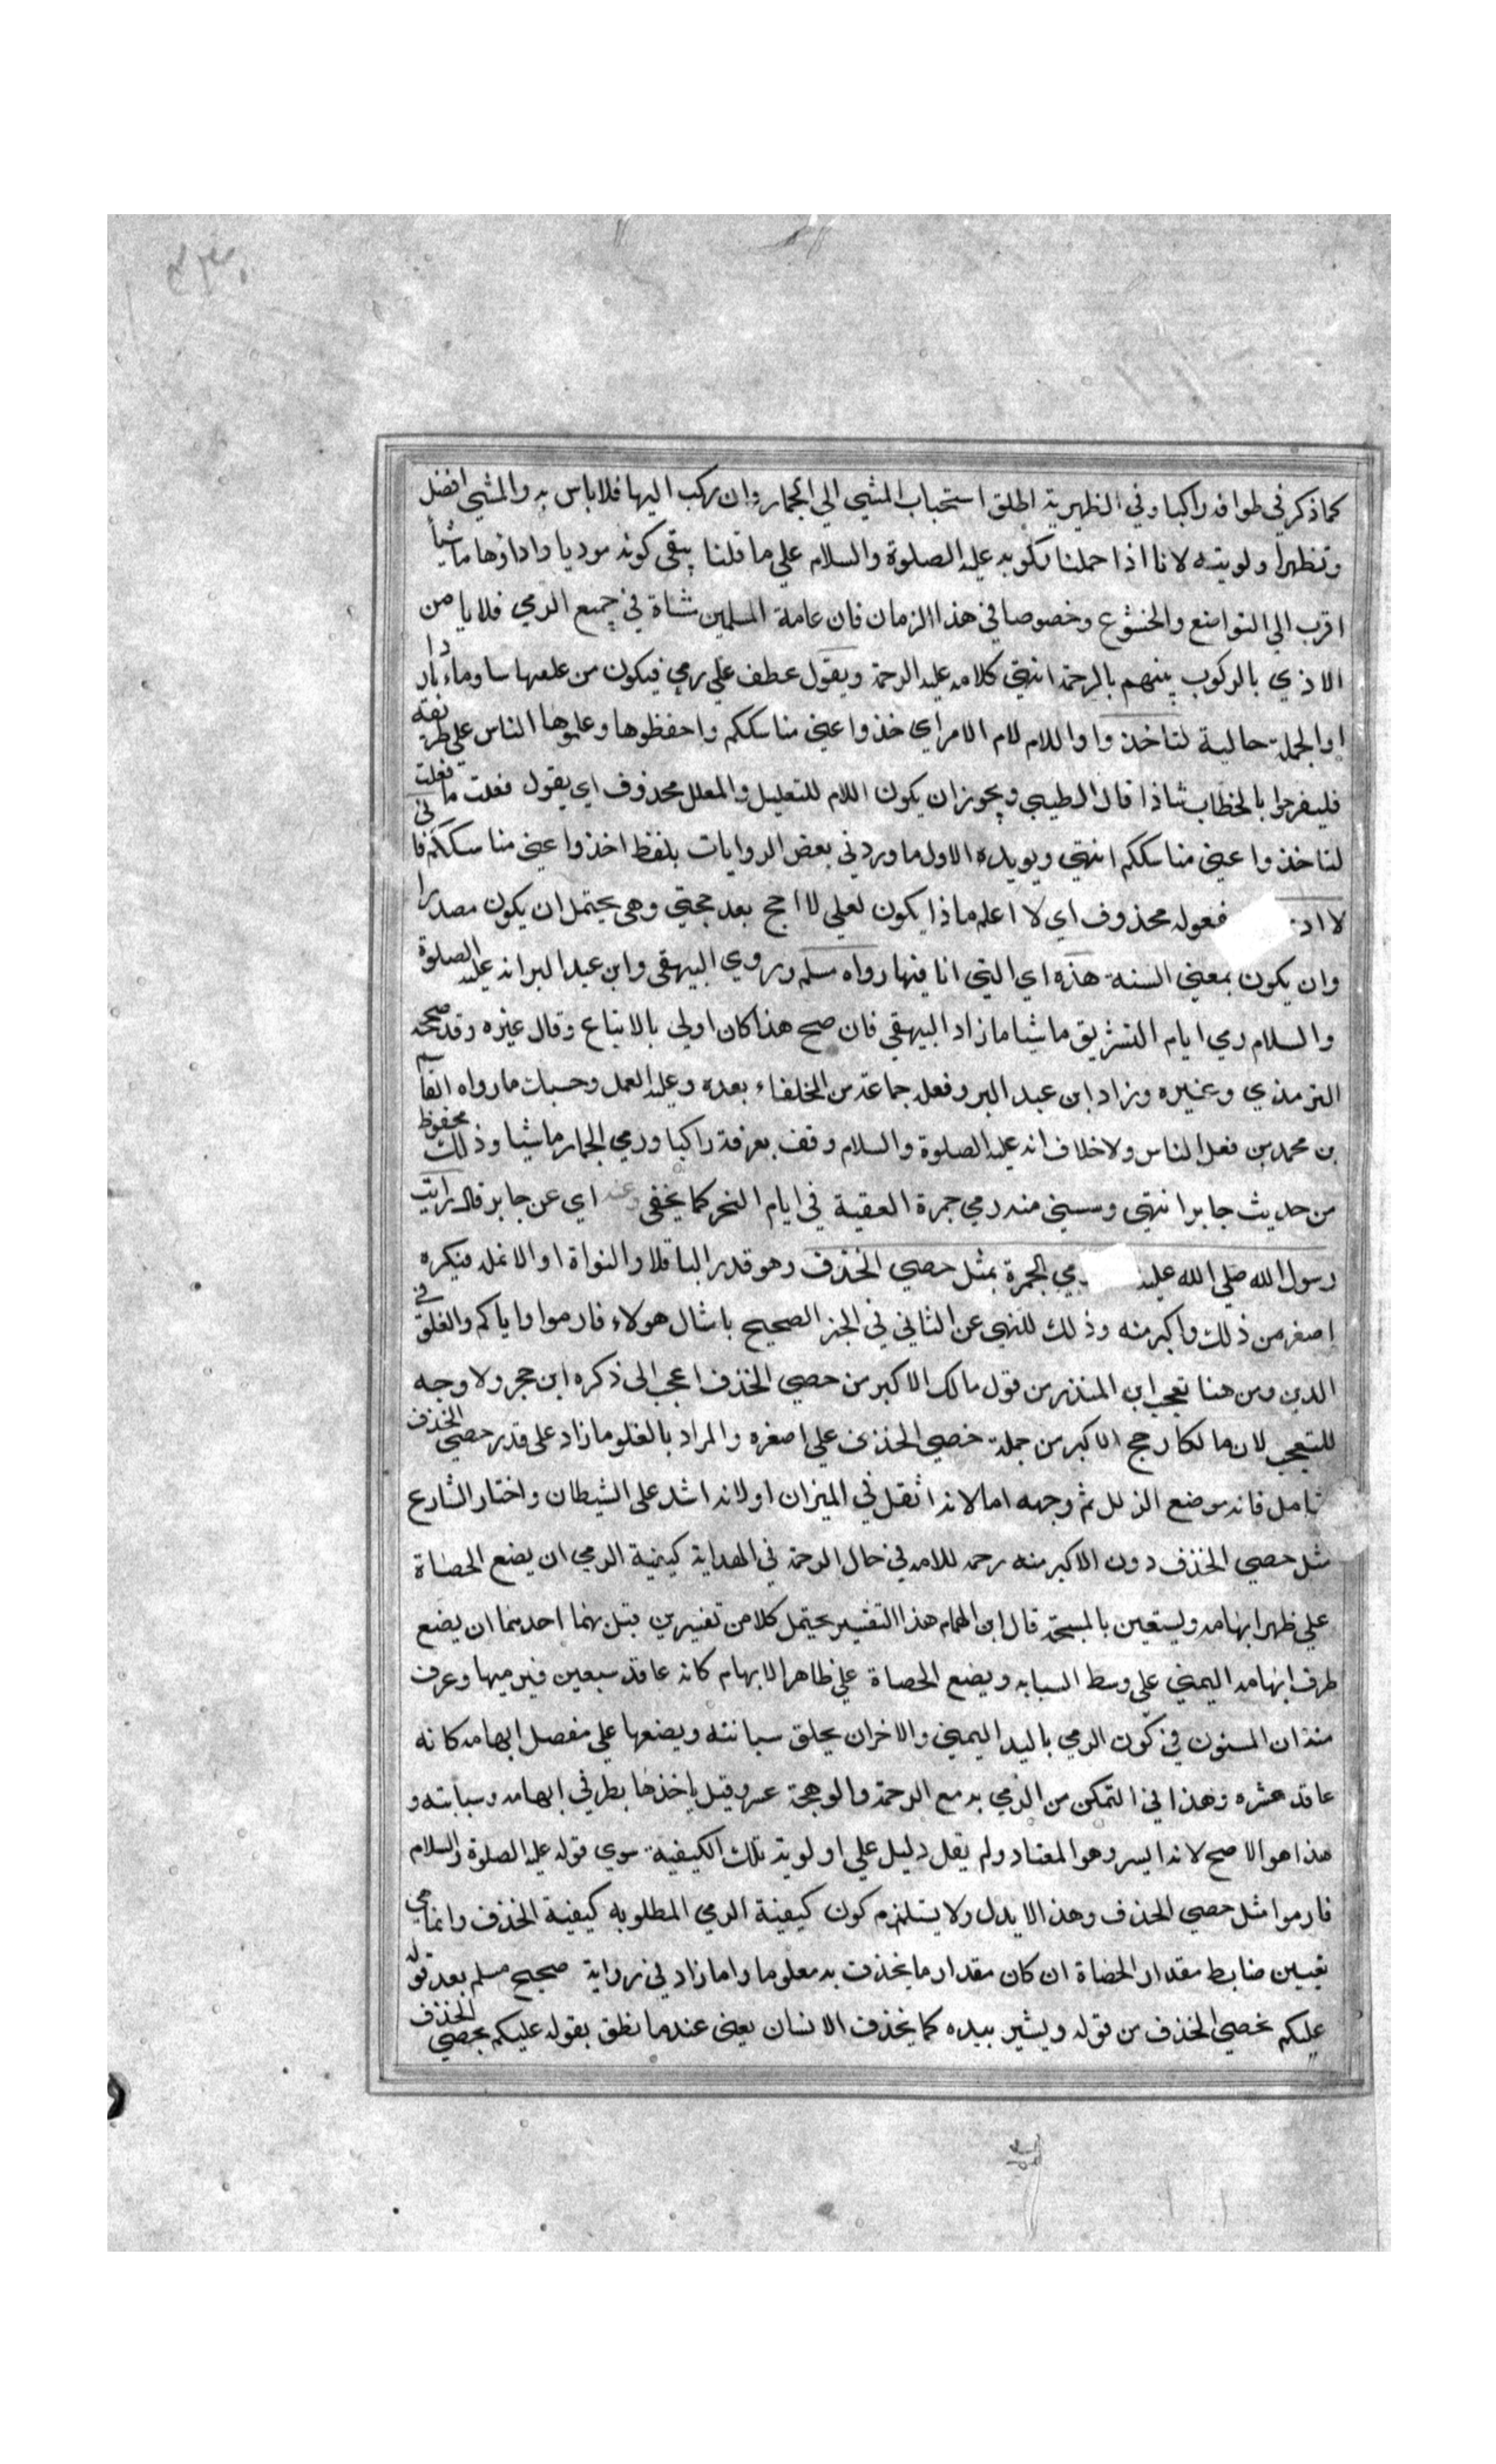 كما ذكر في طوافه راكبا وفي الظهيرية اطلق استحباب المشي الي الجمار وان ركب اليها فلا باس به والمشي افضل
وتظهر اولويته لانا اذا حملنا ركوبه عليه الصلوة والسلام علي ما قلنا يبقي كونه موديا واداؤها ماشيا
اقرب الي التواضع والخشوع وخصوصا في هذا الزمان فان عامة المسلمين مشاة في جميع الرمي فلا يامن
الاذي بالركوب بينهم بالزحمة انتهي كلامه عليه الرحمة ويقول عطف علي يرمي فيكون من علفها ساوماء باردا
او الجملة حالية لتاخذوا واللام لام الامر اي خذوا عني مناسككم واحفظوها وعلموها الناس علي طريقة
فليفرحوا بالخطاب شاذا قال الطيبي ويجوز ان يكون اللام للتعليل والمعلل محذوف اي يقول فعلت ما فعلت
لتاخذوا عني مناسككم انتهي ويويده الاول ما ورد في بعض الروايات بلفظ اخذوا عني مناسككم فاني
لا اد فعوله محذوف اي لا اعلم ماذا يكون لعلي لا احج بعد حجتي وهي يحتمل ان يكون مصدرا
وان يكون بمعني السنة هذه اي التي انا فيها رواه مسلم وروي البيهقي وابن عبد البر انه عليه الصلوة
والسلام رمي ايام التشريق ماشيا ما زاد البيهقي فان صح هذا كان اولي بالاتباع وقال غيره وقد صححه
الترمذي وغيره وزاد ابن عبد البر وفعله جماعة من الخلفاء بعده وعليه العمل وحسبك ما رواه القاسم
بن محمد من فعل الناس ولا خلاف انه عليه الصلوة والسلام وقف بعرفة راكبا ورمي الجمار ماشيا وذلك محفوظ
من حديث جابر انتهي وسستثني منه رمي جمرة العقبة في ايام النحر كما يخفي وعنه اي عن جابر قال رايت
رسول الله صلي الله عليه رمي الجمرة بمثل حصي الخذف وهو قدر الباقلا والنواة او الانملة فيكره
اصغر من ذلك واكبر منه وذلك للنهي عن الثاني في الخبر الصحيح بامثال هولاء فارموا واياكم والغلو في
الدين ومن هنا تعجب ابن المنذر من قول مالك الاكبر من حصي الخذف اعجب الي ذكره ابن حجر ولا وجه
للتعجب لان مالكا رجح الاكبر من جملة حصي الخذف علي اصغره والمراد بالغلو ما زاد علي قدر حصي الخذف
تامل فانه موضع الزلل ثم وجهه اما لانه اثقل في الميزان او لانه اشد علي الشيطان واختار الشارع
مثل حصي الخذف دون الاكبر منه رحمة للامة في حال الزحمة في الهداية كيفية الرمي ان يضع الحصاة
علي ظهر ابهامه ويستعين بالمسبحة قال ابن الهمام هذا التفسير يحتمل كلا من تفسيرين قيل بهما احدهما ان يضع
طرف ابهامه اليمني علي وسط السبابه ويضع الحصاة علي ظاهر الابهام كانه عاقد سبعين فيرميها وعرف
منه ان المسنون في كون الرمي باليد اليمني والاخر ان يحلق سبابته ويضعها علي مفصل ابهامه كانه
عاقد عشره وهذا في التمكن من الرمي به مع الزحمة والوهجة عسر وقيل ياخذها بطرفي ابهامه وسبابته و
هذا هو الاصح لانه ايسر وهو المعتاد ولم يقل دليل علي اولوية تلك الكيفية سوي قوله عليه الصلوة والسلام
فارموا مثل حصي الخذف وهذا لا يدل ولا يستلزم كون كيفية الرمي المطلوبه كيفية الخذف وانما هي
تعيين ضابط مقدار الحصاة ان كان مقدار ما يخذف به معلوما واما زاد في رواية صحيح مسلم بعد قوله
عليكم بحصي الخذف من قوله ويشير بيده كما يخذف الانسان يعني عندما نطق بقوله عليكم بحصي الخذف